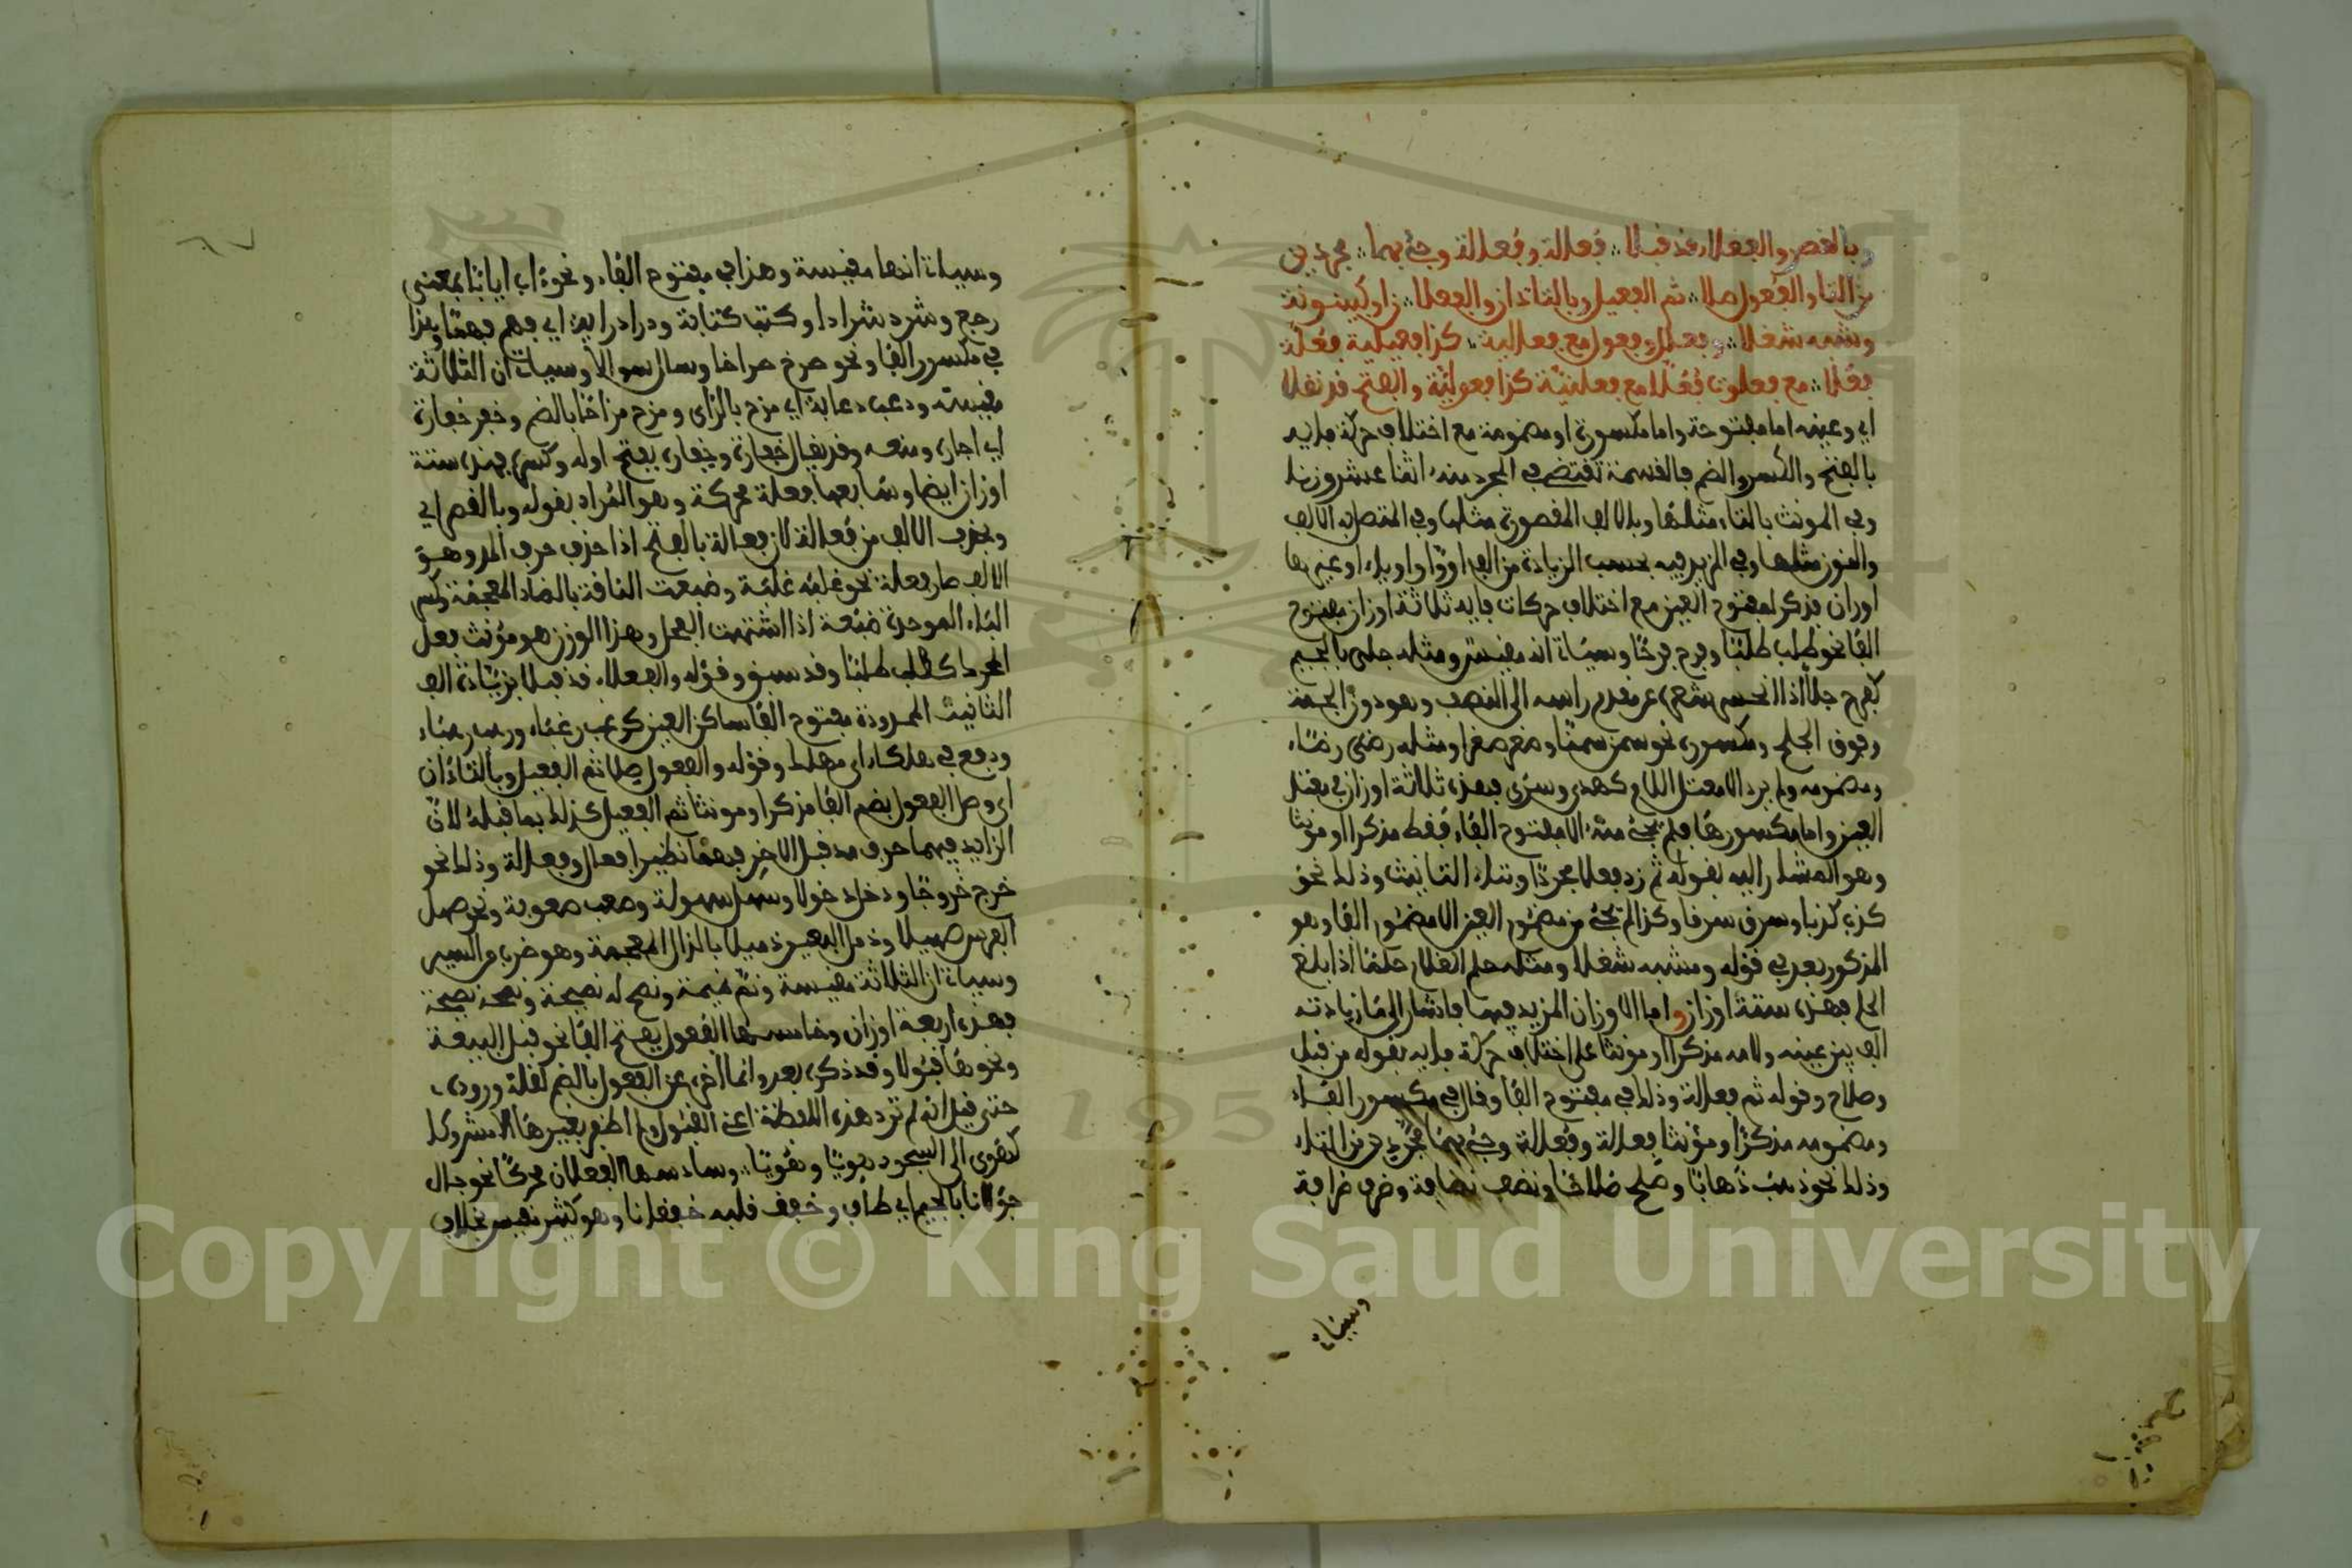 وبالقصر والفعلاء قد قبلا ∴ فُعالة وفَعالة وجئ بهما ∴ مجردين
من التا والفُعول صلا ∴ ثم الفعيل وبالتا ذان والفعلا ∴ ن او كبينونة
ومشبه شغلا ∴ وفعلل وفعول مع فعالية ∴ كذا فعيلية فعلة
فعلا ∴ مع فعلوت فعلى مع فعلنية كذا فعولية والفتح قد نقلا
اي وعينه اما مفتوحة واما مكسورة او مضمومة مع اختلاف حركة فايه
بالفتح والكسر والضم فالقسمة تقتضي في المجرد منه اثنا عشر وزنا
وفي المونث بالتاء مثلها وبالالف المقصورة مثلها وفي المتصل به الالف
والنون مثلها وفي المزيد فيه بحسب الزيادة من الف او واو او ياء او غيرها
اوزان فذكر لمفتوح العين مع اختلاف حركات فايه ثلاثة اوزان مفتوح
الفا نحو طلب طلبا وفرح فرحا وسياتي انه مقيس ومثله جلى بالجيم
كفرح جلا اذا انحسر شعره عن مقدم راسه الى النصف وهو دون الجبهة
وفوق الجلح ومكسوره نحو سمن سمنا وصغر صغرا ومثله رضي رضاء
ومضمومه ولم يرد الا معتل اللام كهدى وسرى فهذه ثلاثة اوزان في مفتل
العين واما مكسورها فلم يجئ منه الا مفتوح الفاء فقط مذكرا او مونثا
وهو المشار اليه بقوله ثم زد فعلا مجردا وبتاء التانيث وذلك نحو
كذب كذبا وسرق سرقا وكذا لم يجئ من مضموم العين الا مضموم الفا وهو
المذكور بعد في قوله ومشبه شغلا ومثله حلم الغلام حلما اذا بلغ
الحلم فهذه ستة اوزان واما الاوزان المزيد فيها فاشار الى ما زيادته
الف بين عينه ولامه مذكرا او مونثا على اختلاف حركة فايه بقوله من قبل
وصلاح وقوله ثم فعالة وذلك في مفتوح الفا وقال في مكسور الفاء
ومضمومه مذكرا ومؤنثا فعالة وفعالة وجئ بهما مجردين من التاء
وذلك نحو ذهب ذهابا وصلح صلاحا ونضف نضافة وضرف ضرافة
وسياتي
وسياتي انها مقيسة وهذا في مفتوح الفاء ونحو اب ايابا بمعنى
رجع وشرد شرادا وكتب كتابة ودرا دراية اي فهم فهما وهذا
في مكسور الفا ونحو صرخ صراخا وسال سوالا وسياتي ان الثلاثة
مقيسة ودعب دعابة اي مزح بالزاي ومزح مزاحا بالضم وخفر خفارة
اي اجاره ومنعه وقد يقال خفارة وخفارة بفتح اوله وكسره فهذه ستة
اوزان ايضا وسابعها فعلة محركة وهو المراد بقوله وبالقصر اي
وبحذف الالف من فعالة لان فعالة بالفتح اذا حذف حرف المد وهو
الالف صار فعلة نحو غلبه غلبة وضبعت الناقة بالضاد المعجمة وكسر
الباء الموحدة ضبعة اذا اشتهت الفحل وهذا الوزن هو مؤنث فعل
المجرد كطلب طلبا وقد سبق وقوله والفعلاء قد قبلا بزيادة الف
التانيث الممدودة مفتوح الفا ساكن العين كرغب رغباء ورهب رهباء
ووقع في هلكاء اي مهلك وقوله والفعول صلا ثم الفعيل وبالتا ذان
اي وصل الفعول بضم الفا مذكرا ومونثا ثم الفعيل كذلك بما قبله لان
الزايد فيهما حرف مد قبل الاخر فهما نظيرا فعال وفعالة وذلك نحو
خرج خروجا ودخل دخولا وسهل سهولة وصعب صعوبة ونحو صهل
الفرس صهيلا وذمل البعير ذميلا بالذال المعجمة وهو ضرب من السير
وسياتي ان الثلاثة مقيسة ونم نميمة ونصح له نصيحة
فهذه اربعة اوزان وخامسها الفعول بفتح الفا نحو قبل البيعة
ونحوها قبولا وقد ذكره بعد وانما اخره عن الفعول بالضم لقلة وروده
حتى قيل انه لم ترد هذه اللفظة اعني القبول ولم اظفر بغيرها الا مشروكا
كهوى الى السجود هويا وهويا ∴ وسادسها الفعلان محركا نحو جال
جولانا بالجيم اي طاف وخفق قلبه خفقانا وهو كثير مقيس بخلاف